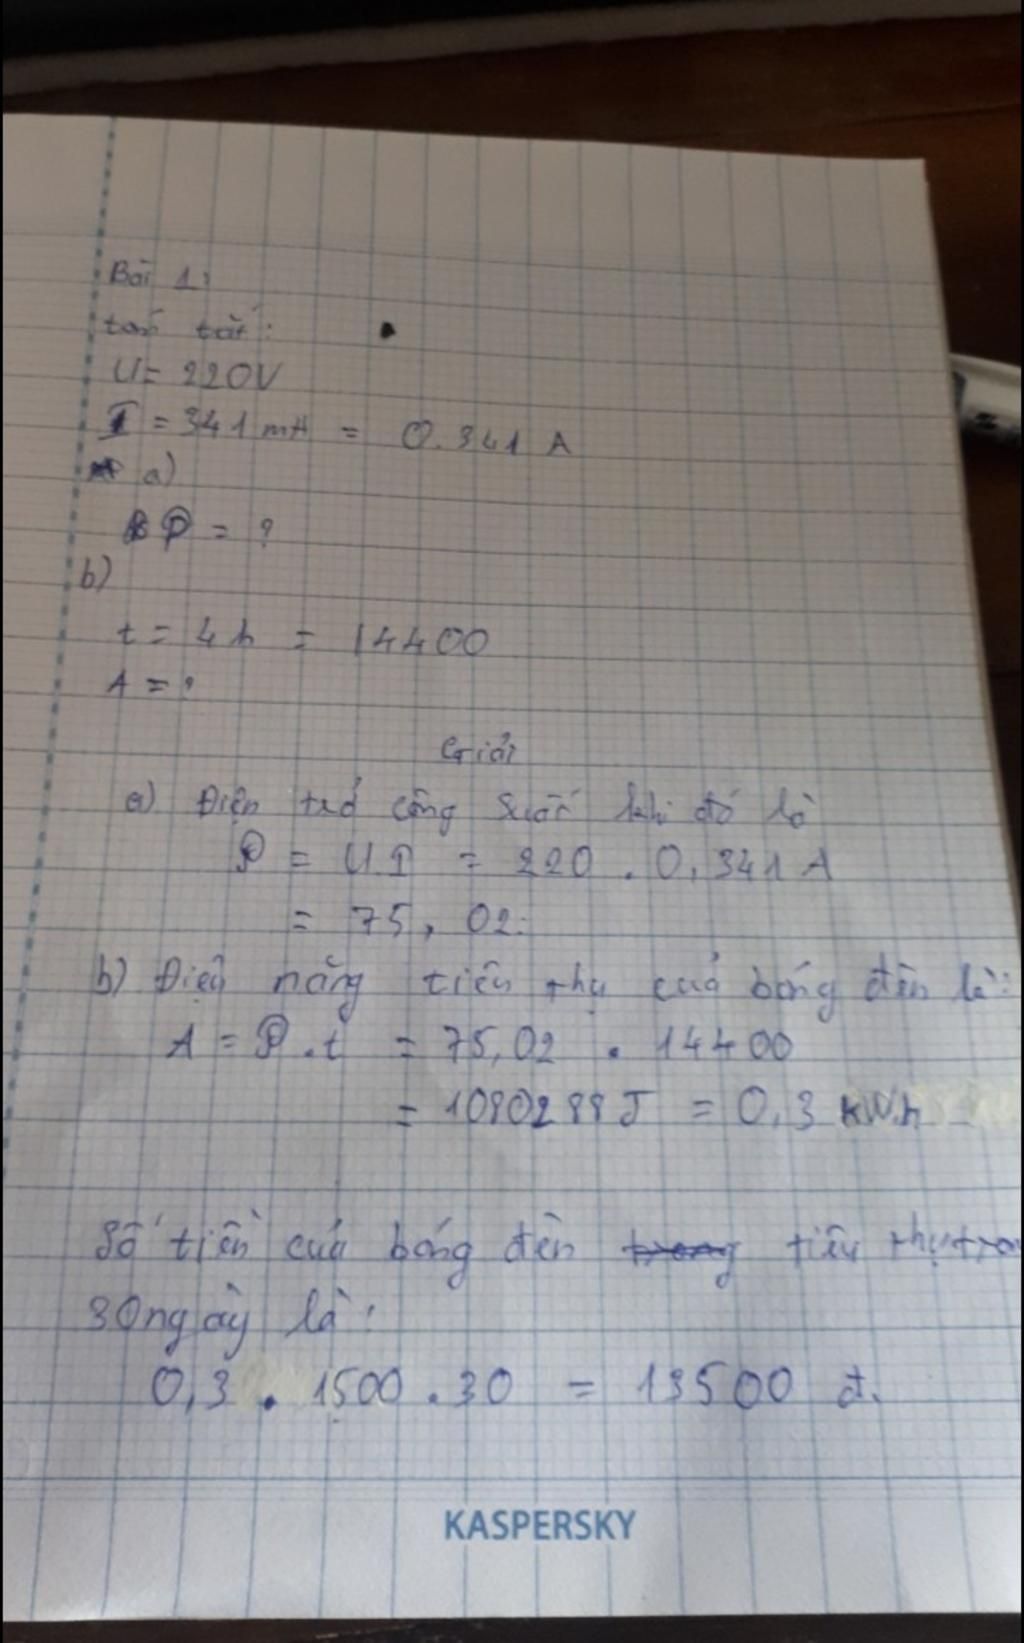 Bài 1:
tóm tắt:
U = 220V
I = 341 mA = 0.341 A
a)
P = ?
b)
t = 4h = 14400
A = ?
Giải
a) Điện trở công suất khi đó là
P = U.I = 220 . 0,341 A
= 75,02.
b) Điện năng tiêu thụ của bóng đèn là:
A = P.t = 75,02 . 14400
= 1080288 J = 0,3 kW.h
Số tiền của bóng đèn tiêu thụ
30 ngày là:
0,3 . 1500 . 30 = 13500 đ.
KASPERSKY